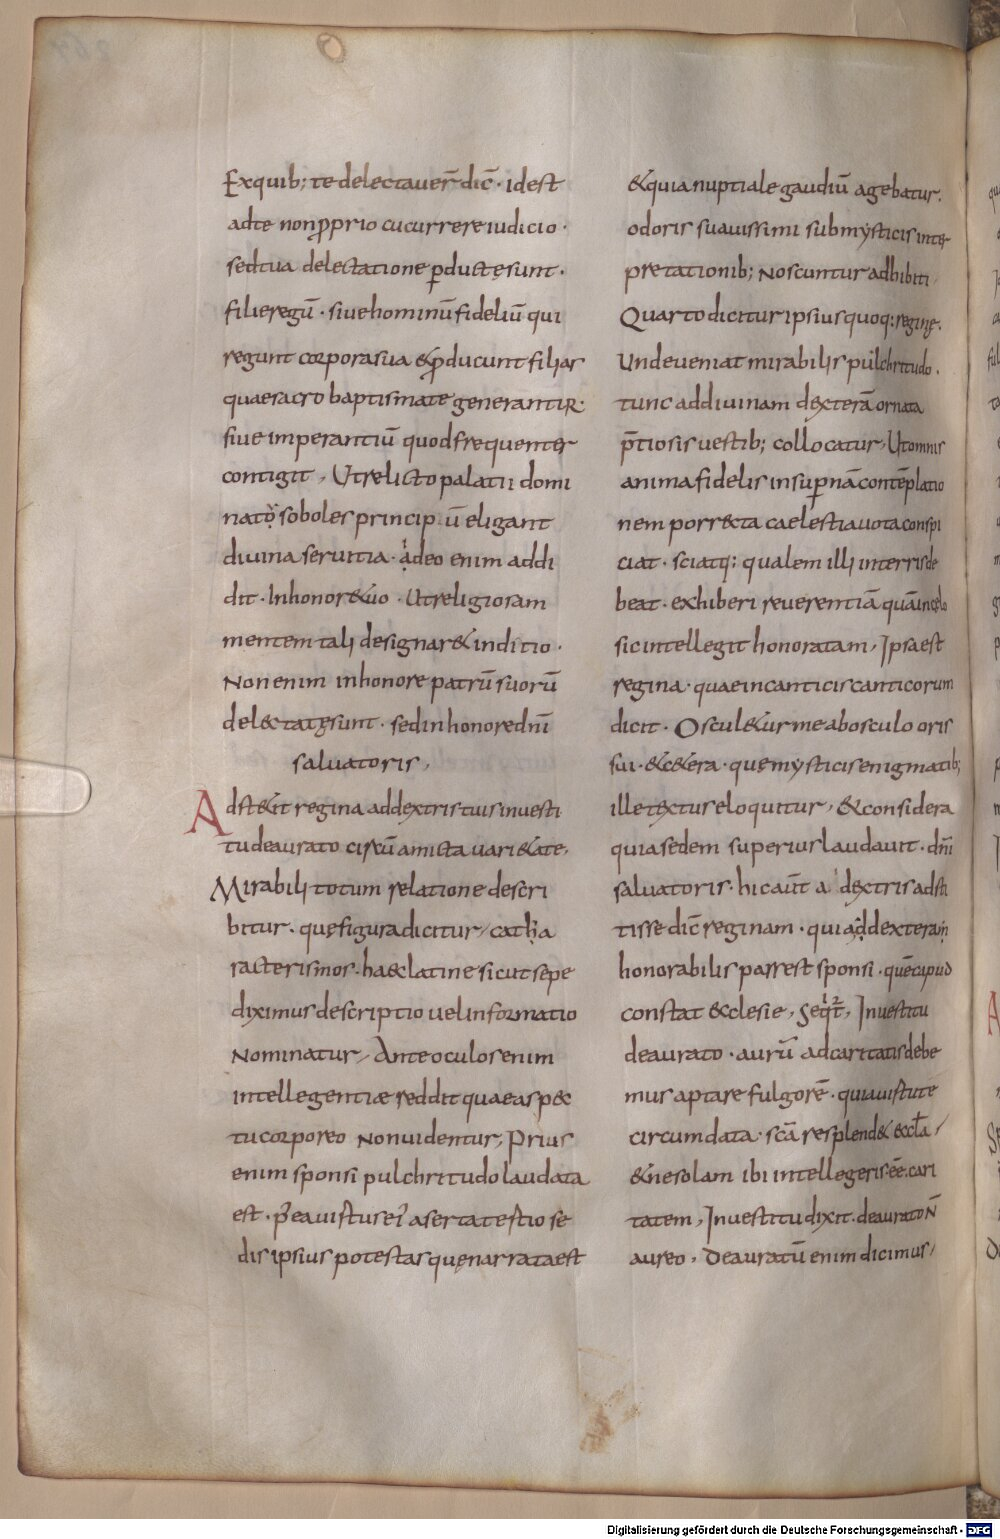 Exquib; te delectauer̄ dic̄ · idest
adte nonꝓprio cucurrere iudicio ·
sedtua delectatione ꝑductęsunt ·
filieregū · siue hominū fideliū qui
regunt corporasua &ꝓducunt filias
quaesacro baptismate generantur ·
siue imperantiū quod frequenter
contigit, Utrelicto palatii domi
nato soboles principū eligant
diuina seruitia · adeo enim addi
dit · Inhonor&uo · Utreligiosam
mentem tali designar& inditio ·
Nonenim inhonore patrū suorū
del&tatęsunt · sedinhonore dn̄i
saluatoris,
Adst&it regina addextristuis inuesti
tudeaurato circū amicta uari&ate,
Mirabili totum relatione descri
bitur · quęfigura dicitur, catha
racterismos · haec latine sicut sepe
diximus descriptio uel informatio
Nominatur, Ante oculos enim
intellegentiæ reddit quaeaspec
tucorporeo Nonuidentur, Prius
enim sponsi pulchritudo laudata
est · p̄ea uirtus ei' aserta tertio se
dis ipsius potestas quęnarrataest
&quia nuptiale gaudiū agebatur.
odoris suauissimi submysticis inter
pretationib; Noscuntur adhibiti
Quarto dicitur ipsius quoq: reginę.
Undeueniat mirabilis pulchritudo.
tunc addiuinam dexterā ornata
p̄tiosis uestib; collocatur, Utomnis
anima fidelis insuꝑnā contēplatio
nem porrecta caelestia uota conspi
ciat · sciatq: qualem illi interris de
beat · exhiberi reuerentiā quāincęlo
sic intellegit honoratam, Ipsaest
regina · quae incanticis canticorum
dicit · Oscul&ur me abosculo oris
sui · &c&era · quęmysticis enigmatib;
ille textus eloquitur, &considera
quia sedem superius laudauit · dn̄i
saluatoris · hicaūt a dextris adsti
tisse dic̄ reginam · quia addexteram
honorabilis pars est sponsi · quēcapud
constat &cclesie, Seqt̄, Inuestitu
deaurato · aurū adcaritatis debe
mus aptare fulgorē · quiauirtute
circumdata · scā resplend& eccl̄a,
&nesolam ibi intellegeris ēe. cari
tatem, Inuestitu dixit · deaurato N̄
aureo, Deauratū enim dicimus,
Digitalisierung gefördert durch die Deutsche Forschungsgemeinschaft - DFG